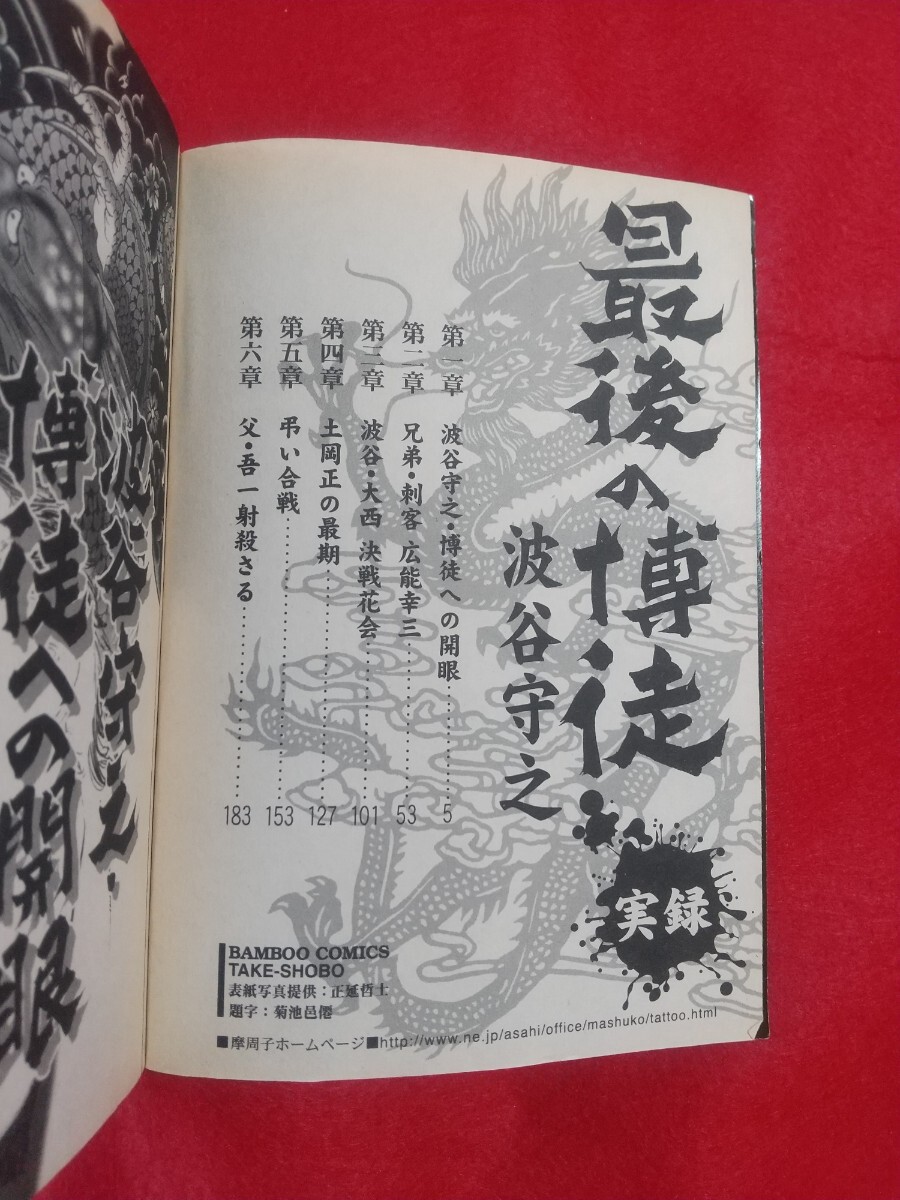 最後の博徒
波谷守之
実録
第一章 波谷守之・博徒への開眼 5
第二章 兄弟・刺客 広能幸三 53
第三章 波谷・大西 決戦花会 101
第四章 土岡正の最期 127
第五章 弔い合戦 153
第六章 父・吾一射殺さる 183
BAMBOO COMICS
TAKE-SHOBO
表紙写真提供：正延哲士
題字：菊池邑僊
■摩周子ホームページ■http://www.ne.jp/asahi/office/mashuko/tattoo.html
波谷守之・
博徒への開眼